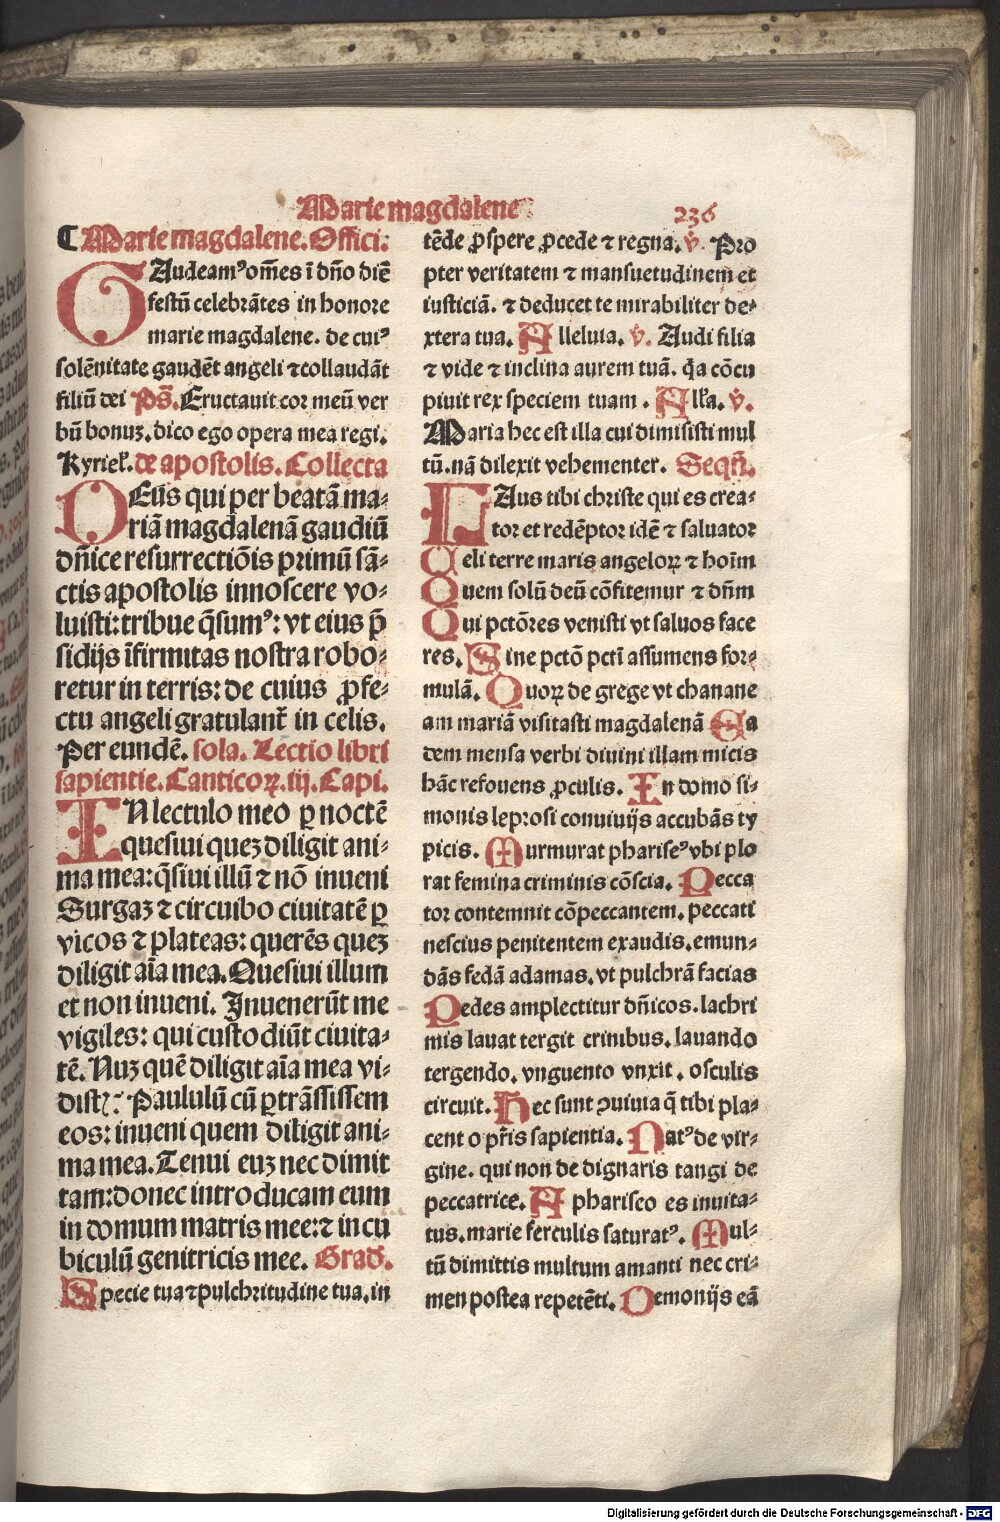 Marie magdalene 236
⁋ Marie magdalene. Offici.
GAudeamꝰ om̃es ī dño diē
festū celebrātes in honore
marie magdalene. de cuiꝰ
solēnitate gaudēt angeli ⁊ collaudāt
filiū dei Ps̄. Eructauit cor meū ver
bū bonuꝫ. dico ego opera mea regi.
Kyriel̕. de apostolis. Collecta
DEus qui per beatā ma⸗
riā magdalenā gaudiū
dñice resurrectiōis primū sā⸗
ctis apostolis innoscere vo⸗
luisti: tribue q̄sumꝰ: vt eius p̄
sidijs īfirmitas nostra robo⸗
retur in terris: de cuius ꝓfe⸗
ctu angeli gratulant̄ in celis.
Per eundē. sola. Lectio libri
sapientie. Canticoꝝ. iij. Capi.
IN lectulo meo ꝑ noctē
quesiui quez diligit ani⸗
ma mea: q̄siui illū ⁊ nō inueni
Surgaz ⁊ circuibo ciuitatē ꝑ
vicos ⁊ plateas: querēs quez
diligit aīa mea. Quesiui illum
et non inueni. Inuenerūt me
vigiles: qui custodiūt ciuita⸗
tē. Nuz quē diligit aīa mea vi⸗
distꝭ: Paululū cū ꝑtrāssissem
eos: inueni quem diligit ani⸗
ma mea. Tenui euz nec dimit
tam: donec introducam eum
in domum matris mee: ⁊ in cu
biculū genitricis mee. Grad̕.
Specie tua ⁊ pulchritudine tua. in
tēde ꝓspere ꝓcede ⁊ regna. v̄. Pro
pter veritatem ⁊ mansuetudinem et
iusticiā. ⁊ deducet te mirabiliter de⸗
xtera tua. Alleluia. v̄. Audi filia
⁊ vide ⁊ inclina aurem tuā. q̄a cōcu
piuit rex speciem tuam. All̕a. v̄.
Maria hec est illa cui dimisisti mul
tū. nā dilexit vehementer. Seqn̄.
LAus tibi christe qui es crea⸗
tor et redēptor idē ⁊ saluator
Celi terre maris angeloꝝ ⁊ hoīm
Quem solū deū cōfitemur ⁊ dn̄m
Qui pctōres venisti vt saluos face
res. Sine pctō pctī assumens for⸗
mulā. Quoꝝ de grege vt chanane
am mariā visitasti magdalenā Ea
dem mensa verbi diuini illam micis
hāc refouens ꝓculis. In domo si⸗
monis leprosi conuiuijs accubās ty
picis. Murmurat phariseꝰ vbi plo
rat femina criminis cōscia. Pecca
tor contemnit cōpeccantem. peccati
nescius penitentem exaudis. emun⸗
dās fedā adamas. vt pulchrā facias
Pedes amplectitur dn̄icos. lachri
mis lauat tergit crinibus. lauando
tergendo. vnguento vnxit. osculis
circuit. Hec sunt ꝯuiuia q̄ tibi pla⸗
cent o pr̄is sapientia. Natꝰ de vir⸗
gine. qui non de dignaris tangi de
peccatrice. A phariseo es inuita⸗
tus. marie ferculis saturatꝰ. Mul⸗
tū dimittis multum amanti nec cri⸗
men postea repetēti. Demonijs eā
Digitalisierung gefördert durch die Deutsche Forschungsgemeinschaft - DFG